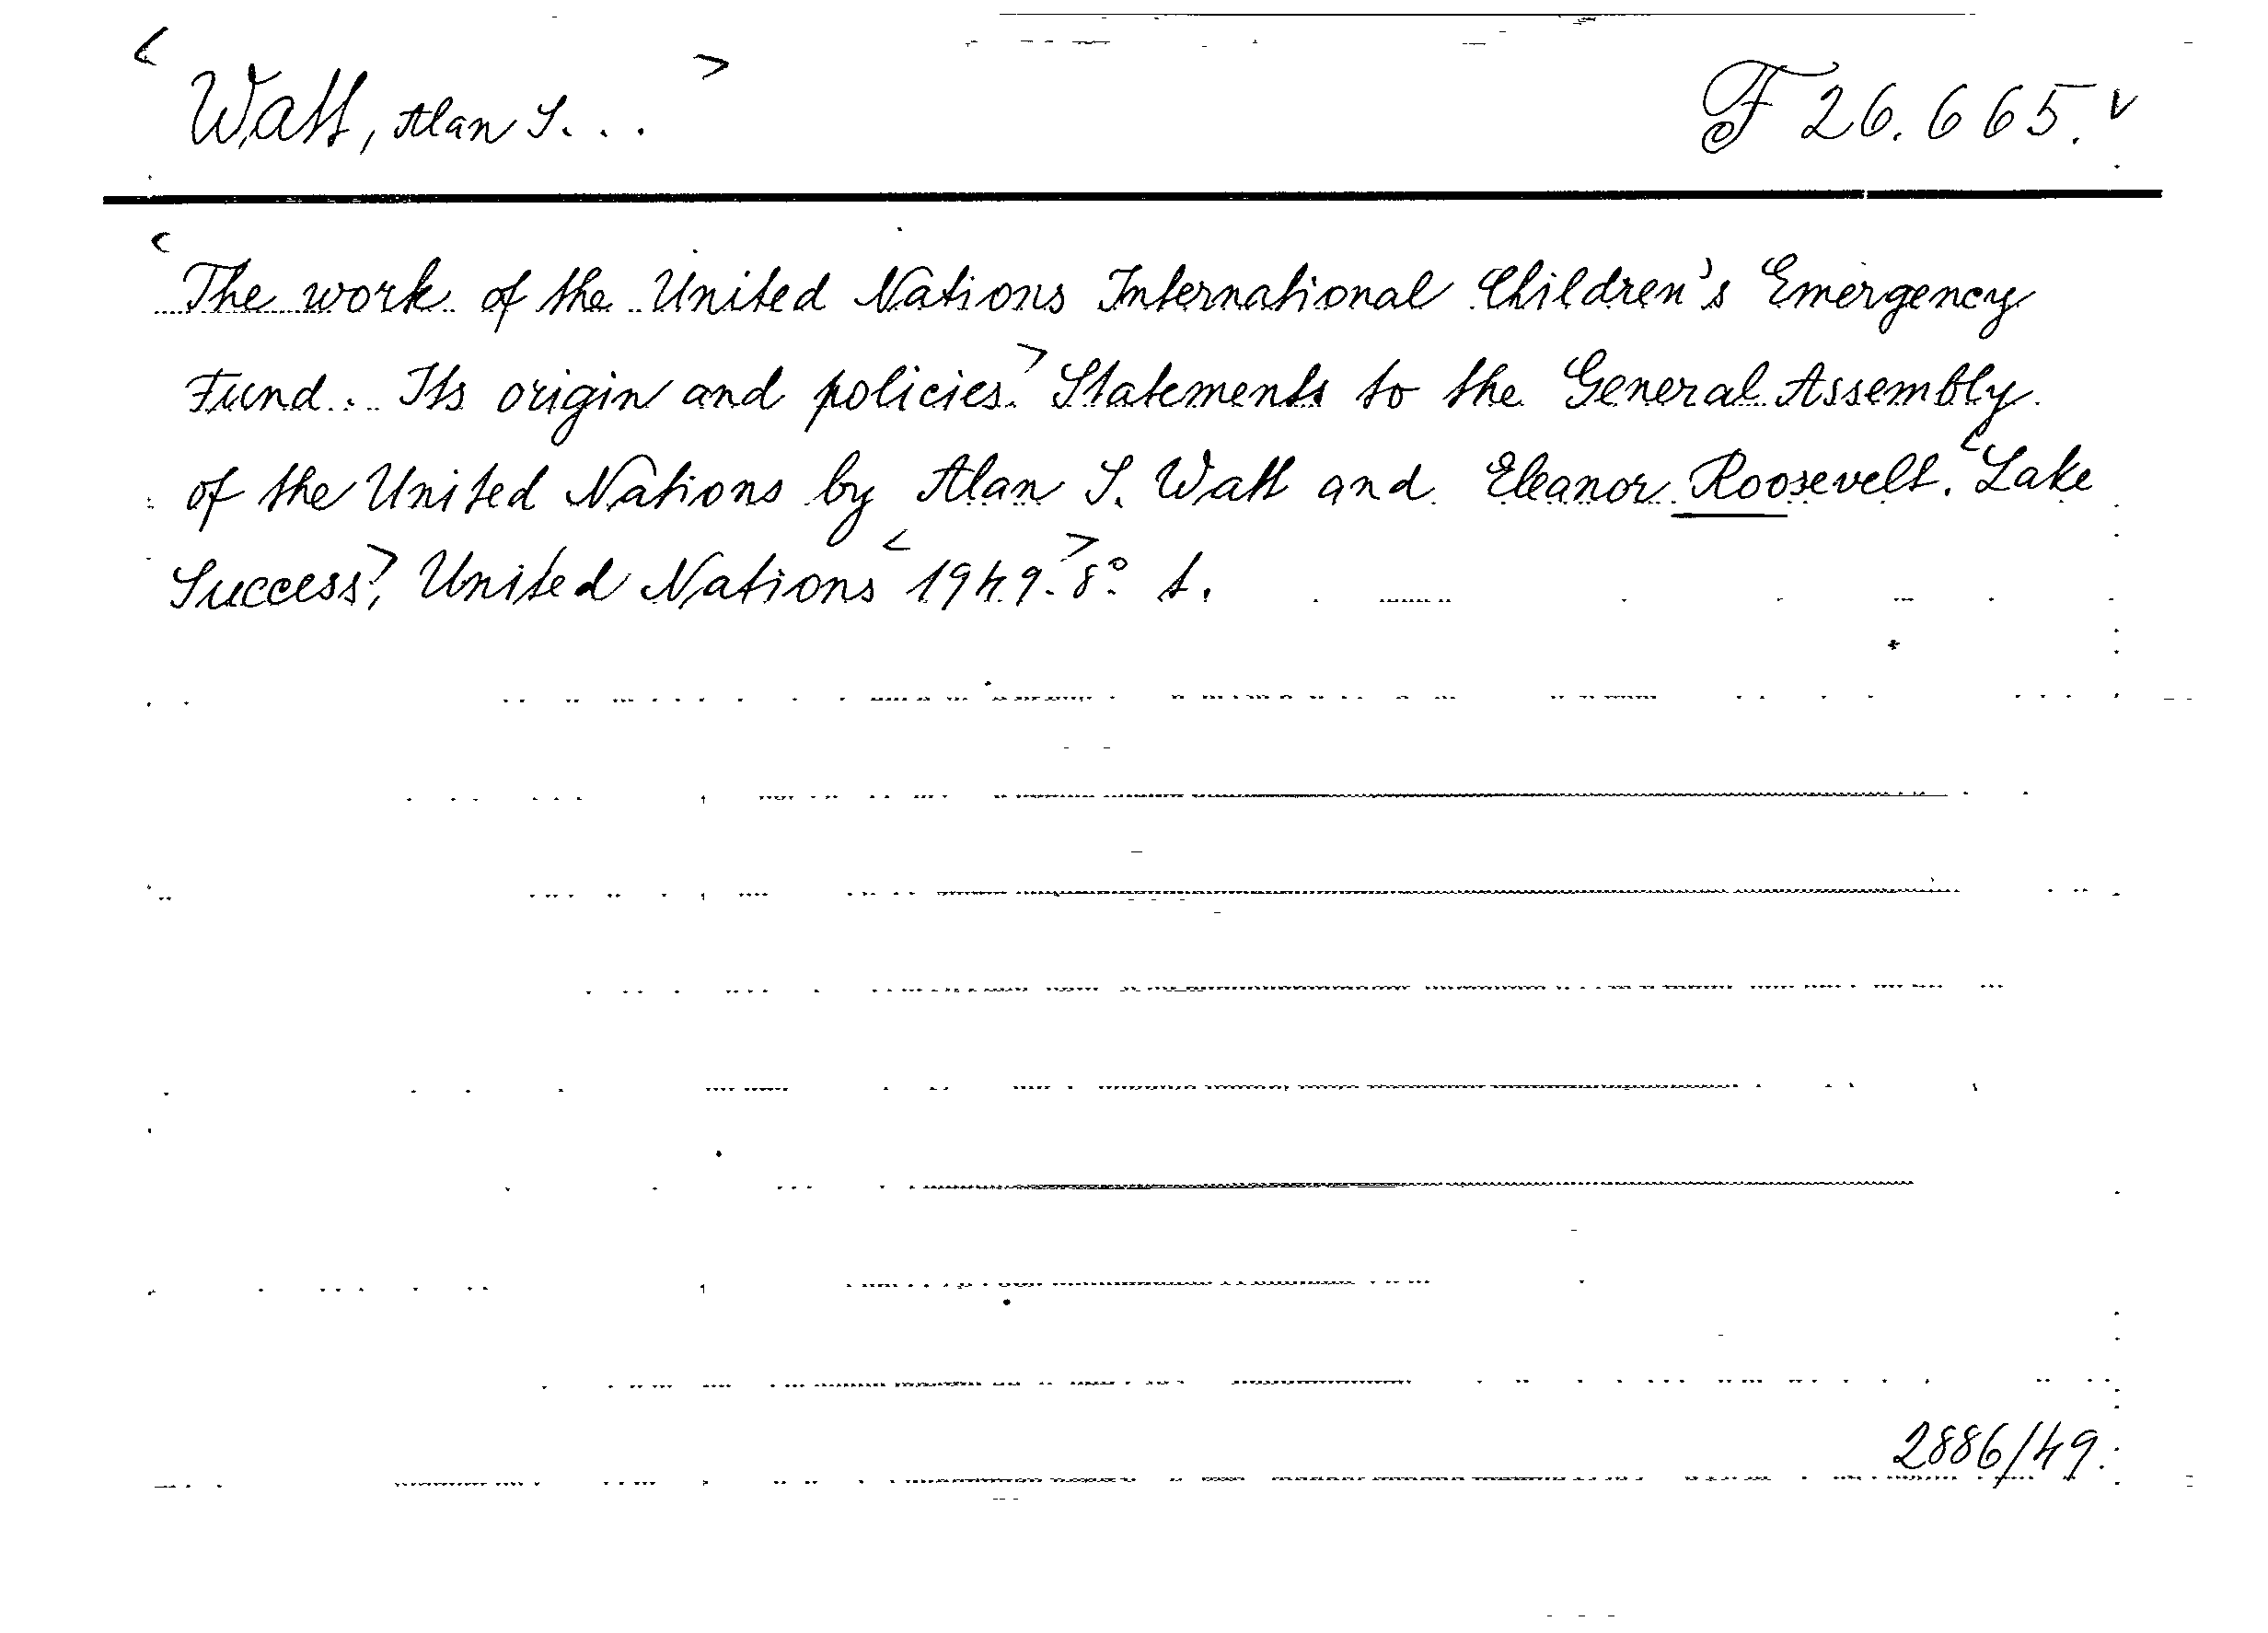 < Watt, Alan S... > F 26.665. v
< The work of the United Nations International Children's Emergency
Fund. Its origin and policies. > Statements to the General Assembly
of the United Nations by Alan S. Watt and Eleanor Roosevelt. < Lake
Success >, United Nations < 1949. > 8° t.
2886/49.